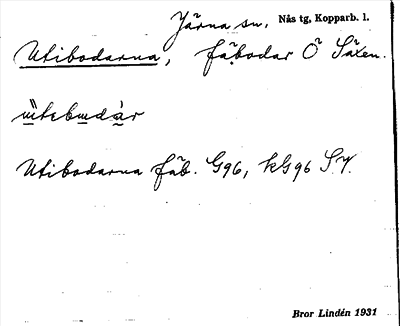 Järna sn. Nås tg, Kopparb. l.
Utibodarna, fäbodar Ö Säxen.
Utibodarna fäb. G96, kG96 S.V.
Bror Lindén 1931